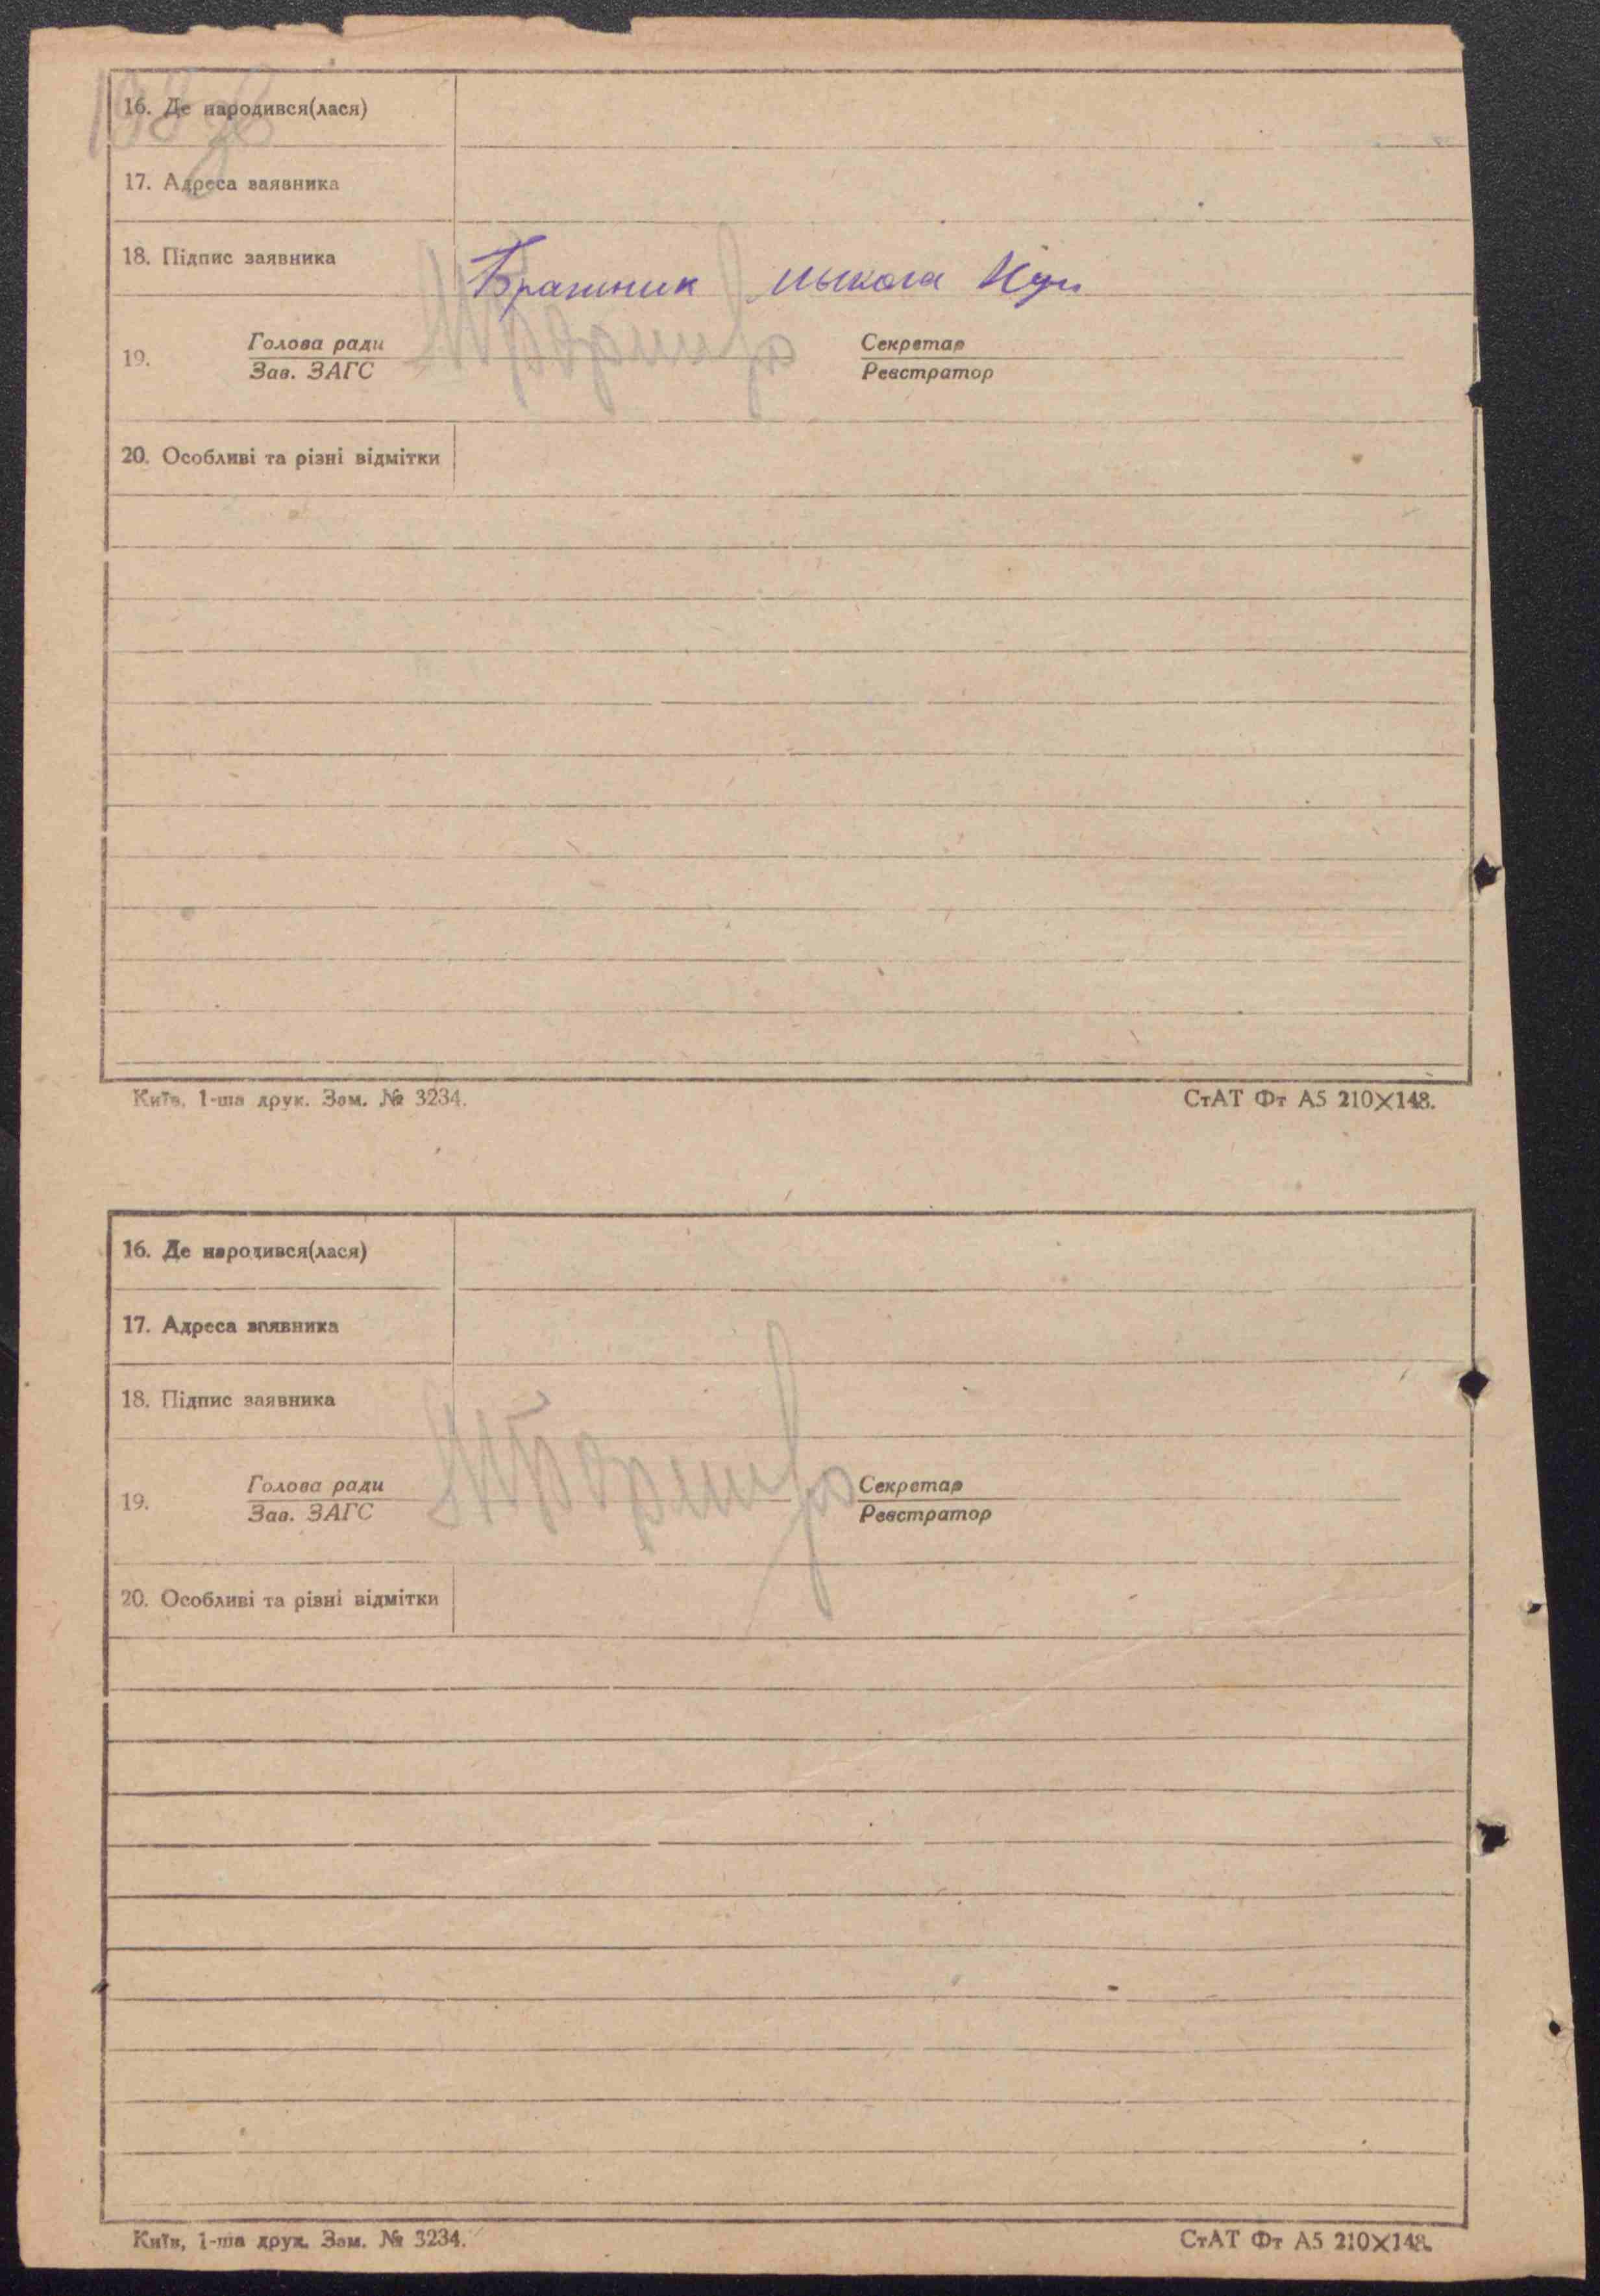 16. Де народився(лася)
17. Адреса заявника
18. Підпис заявника Мыкола
19. Голова ради Секретар
Зав. ЗАГС Реєстратор
20. Особливі та різні відмітки
Київ, 1-ша друк. Зам. № 3234. СтАТ Фт А5 210×148.
16. Де народився(лася)
17. Адреса заявника
18. Підпис заявника
19. Голова ради Секретар
Зав. ЗАГС Реєстратор
20. Особливі та різні відмітки
Київ, 1-ша друк. Зам. № 3234. СтАТ Фт А5 210×148.